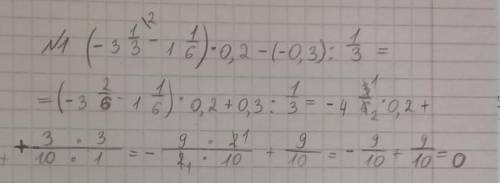 №1 (-3 1/3 \² - 1 1/6) · 0,2 - (-0,3) : 1/3 =
= (-3 2/6 - 1 1/6) · 0,2 + 0,3 : 1/3 = -4 3¹/6₂ · 0,2 +
+ 3 · 3/10 · 1 = - 9 · 2¹/2₁ · 10 + 9/10 = - 9/10 + 9/10 = 0